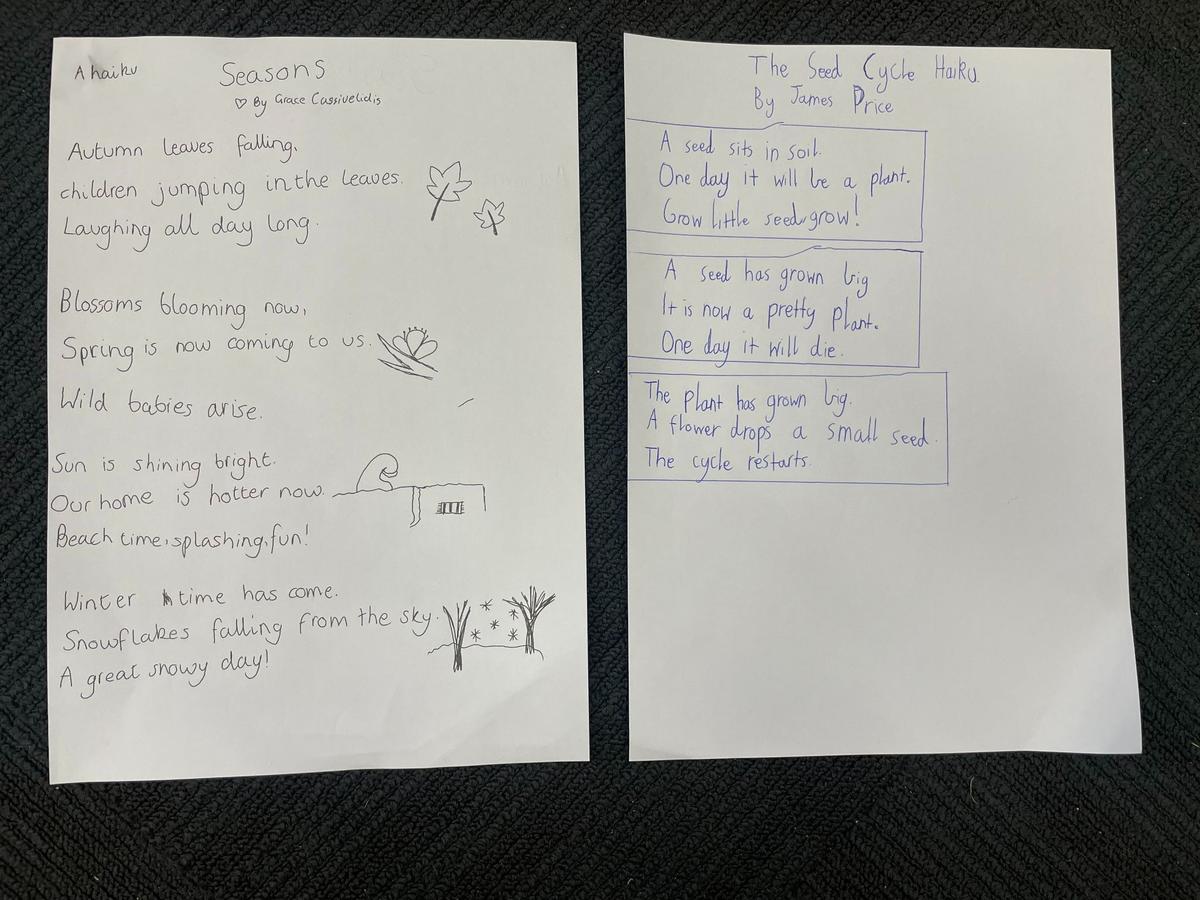 A haiku
Seasons
♡ By Grace Cassivelidis
Autumn leaves falling,
children jumping in the leaves.
Laughing all day long.
Blossoms blooming now,
Spring is now coming to us.
Wild babies arise.
Sun is shining bright.
Our home is hotter now.
Beach time, splashing, fun!
Winter time has come.
Snowflakes falling from the sky.
A great snowy day!
The Seed Cycle Haiku.
By James Price
A seed sits in soil.
One day it will be a plant.
Grow little seed, grow!
A seed has grown big
It is now a pretty plant.
One day it will die.
The plant has grown big.
A flower drops a small seed.
The cycle restarts.